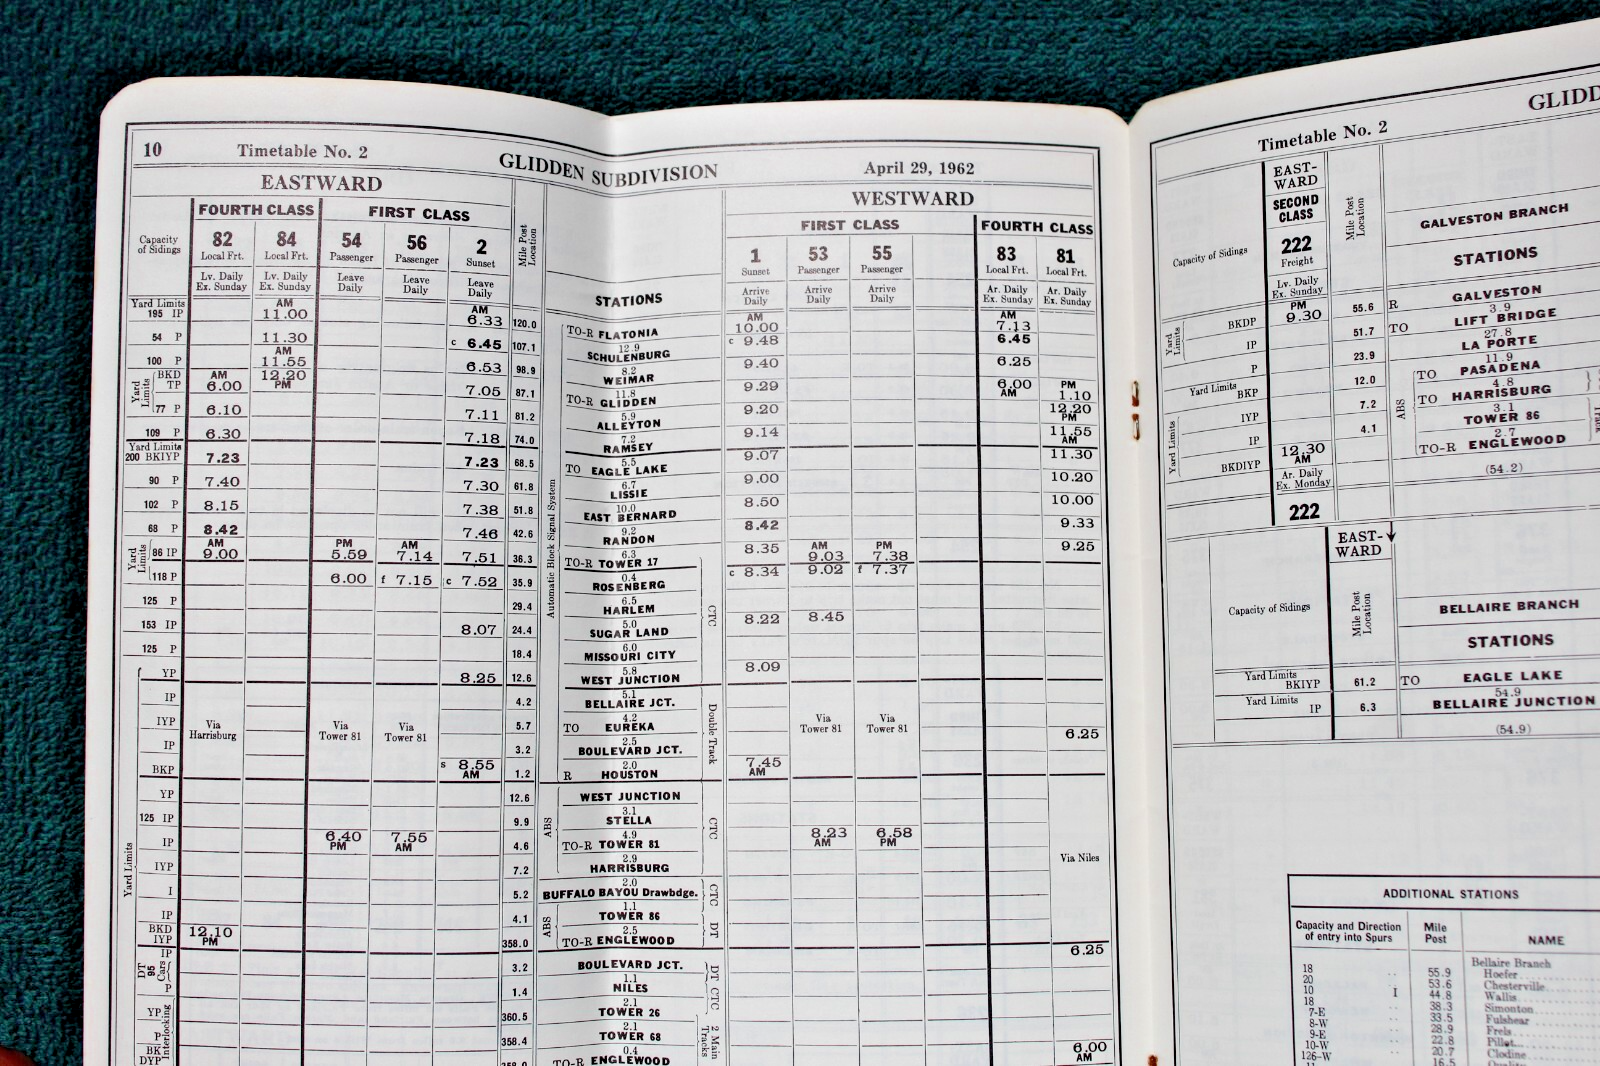 10 Timetable No. 2 GLIDDEN SUBDIVISION April 29, 1962
EASTWARD WESTWARD
FOURTH CLASS FIRST CLASS Mile Post Location FIRST CLASS FOURTH CLASS
Capacity of Sidings 82 84 54 56 2 STATIONS 1 53 55 83 81
Local Frt. Local Frt. Passenger Passenger Sunset Sunset Passenger Passenger Local Frt. Local Frt.
Lv. Daily Ex. Sunday Lv. Daily Ex. Sunday Leave Daily Leave Daily Leave Daily Arrive Daily Arrive Daily Arrive Daily Ar. Daily Ex. Sunday Ar. Daily Ex. Sunday
Yard Limits 195 IP AM 11.00 AM 6.33 120.0 TO-R FLATONIA AM 10.00 AM 7.13
12.9
54 P 11.30 c 6.45 107.1 SCHULENBURG c 9.48 6.45
8.2
100 P AM 11.55 6.53 98.9 WEIMAR 9.40 6.25
11.8
Yard Limits BKD TP AM 6.00 12.20 PM 7.05 87.1 TO-R GLIDDEN 9.29 6.00 AM PM 1.10
5.9
77 P 6.10 7.11 81.2 ALLEYTON 9.20 12.20 PM
7.2
109 P 6.30 7.18 74.0 RAMSEY 9.14 11.55 AM
5.5
Yard Limits 200 BKIYP 7.23 7.23 68.5 TO EAGLE LAKE 9.07 11.30
6.7
90 P 7.40 7.30 61.8 LISSIE 9.00 10.20
10.0
102 P 8.15 7.38 51.8 EAST BERNARD 8.50 10.00
9.2
68 P 8.42 7.46 42.6 RANDON 8.42 9.33
6.3
Yard Limits 86 IP AM 9.00 PM 5.59 AM 7.14 7.51 36.3 TO-R TOWER 17 8.35 AM 9.03 PM 7.38 9.25
0.4
118 P 6.00 f 7.15 c 7.52 35.9 ROSENBERG c 8.34 9.02 f 7.37
6.5
125 P 29.4 HARLEM
5.0
153 IP 8.07 24.4 SUGAR LAND 8.22 8.45
6.0
125 P 18.4 MISSOURI CITY
5.8
YP 8.25 12.6 WEST JUNCTION 8.09
5.1
IP 4.2 BELLAIRE JCT.
4.2
IYP Via Harrisburg Via Tower 81 Via Tower 81 5.7 TO EUREKA Via Tower 81 Via Tower 81 6.25
2.5
IP 3.2 BOULEVARD JCT.
2.0
BKP s 8.55 AM 1.2 R HOUSTON 7.45 AM
Automatic Block System Signal
CTC
Double Track
YP 12.6 WEST JUNCTION
3.1
125 IP 9.9 STELLA
4.9
IP 6.40 PM 7.55 AM 4.6 TO-R TOWER 81 8.23 AM 6.58 PM
2.9
IYP 7.2 HARRISBURG Via Niles
2.0
I 5.2 BUFFALO BAYOU Drawbdge.
1.1
IP 4.1 TOWER 86
2.5
BKD IYP 12.10 PM 358.0 TO-R ENGLEWOOD 6.25
ABS CTC
CTC
ABS DT
Yard Limits
IP 3.2 BOULEVARD JCT.
1.1
DT 95 Cars P 1.4 NILES
2.1
YP 360.5 TOWER 26
2.1
P 358.4 TOWER 68
0.4
BK DYP TO-R ENGLEWOOD 6.00 AM
Interlocking
DT CTC
2 Main Tracks
Timetable No. 2 GLIDD
EASTWARD
SECOND CLASS Mile Post Location GALVESTON BRANCH
Capacity of Sidings 222 Freight STATIONS
Lv. Daily Ex. Sunday
BKDP PM 9.30 55.6 R GALVESTON
3.9
IP 51.7 TO LIFT BRIDGE
27.8
P 23.9 LA PORTE
11.9
Yard Limits BKP 12.0 TO PASADENA
4.8
IYP 7.2 TO HARRISBURG
3.1
IP 4.1 TOWER 86
2.7
BKDIYP 12.30 AM TO-R ENGLEWOOD
Yard Limits
Yard Limits
ABS
Track
Ar. Daily Ex. Monday (54.2)
222
EASTWARD
Capacity of Sidings Mile Post Location BELLAIRE BRANCH
STATIONS
Yard Limits BKIYP 61.2 TO EAGLE LAKE
54.9
Yard Limits IP 6.3 BELLAIRE JUNCTION
(54.9)
ADDITIONAL STATIONS
Capacity and Direction of entry into Spurs Mile Post NAME
Bellaire Branch
18 55.9 Hoefer
20 53.6 Chesterville
10 I 44.8 Wallis
18 38.3 Simonton
7-E 33.5 Fulshear
8-W 28.9 Frels
9-E 22.8
10-W 20.7 Clodine
126-W 16.5